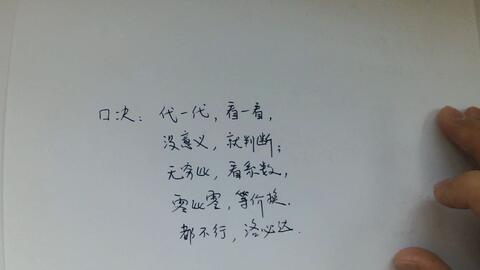 口决：代一代，看一看，
没意义，就判断；
无穷比，看系数，
零比零，等价换．
都不行，洛必达．